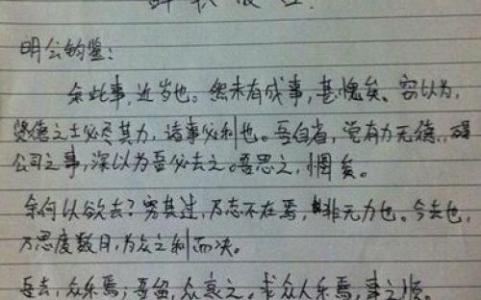 辞职报告
明公钧鉴:
余此事,近岁也。然未有成事,甚愧矣。窃以为,
贤德之士必尽其力,诸事必利也。吾自省,觉有力无德,碍
公司之事,深以为吾必去之。吾思之,惆矣。
余何以欲去?究其过,乃志不在焉,非无力也。今去也,
乃思度数月,为众之利而决。
吾去,众乐焉;吾留,众哀之。求众人乐焉,事之顺